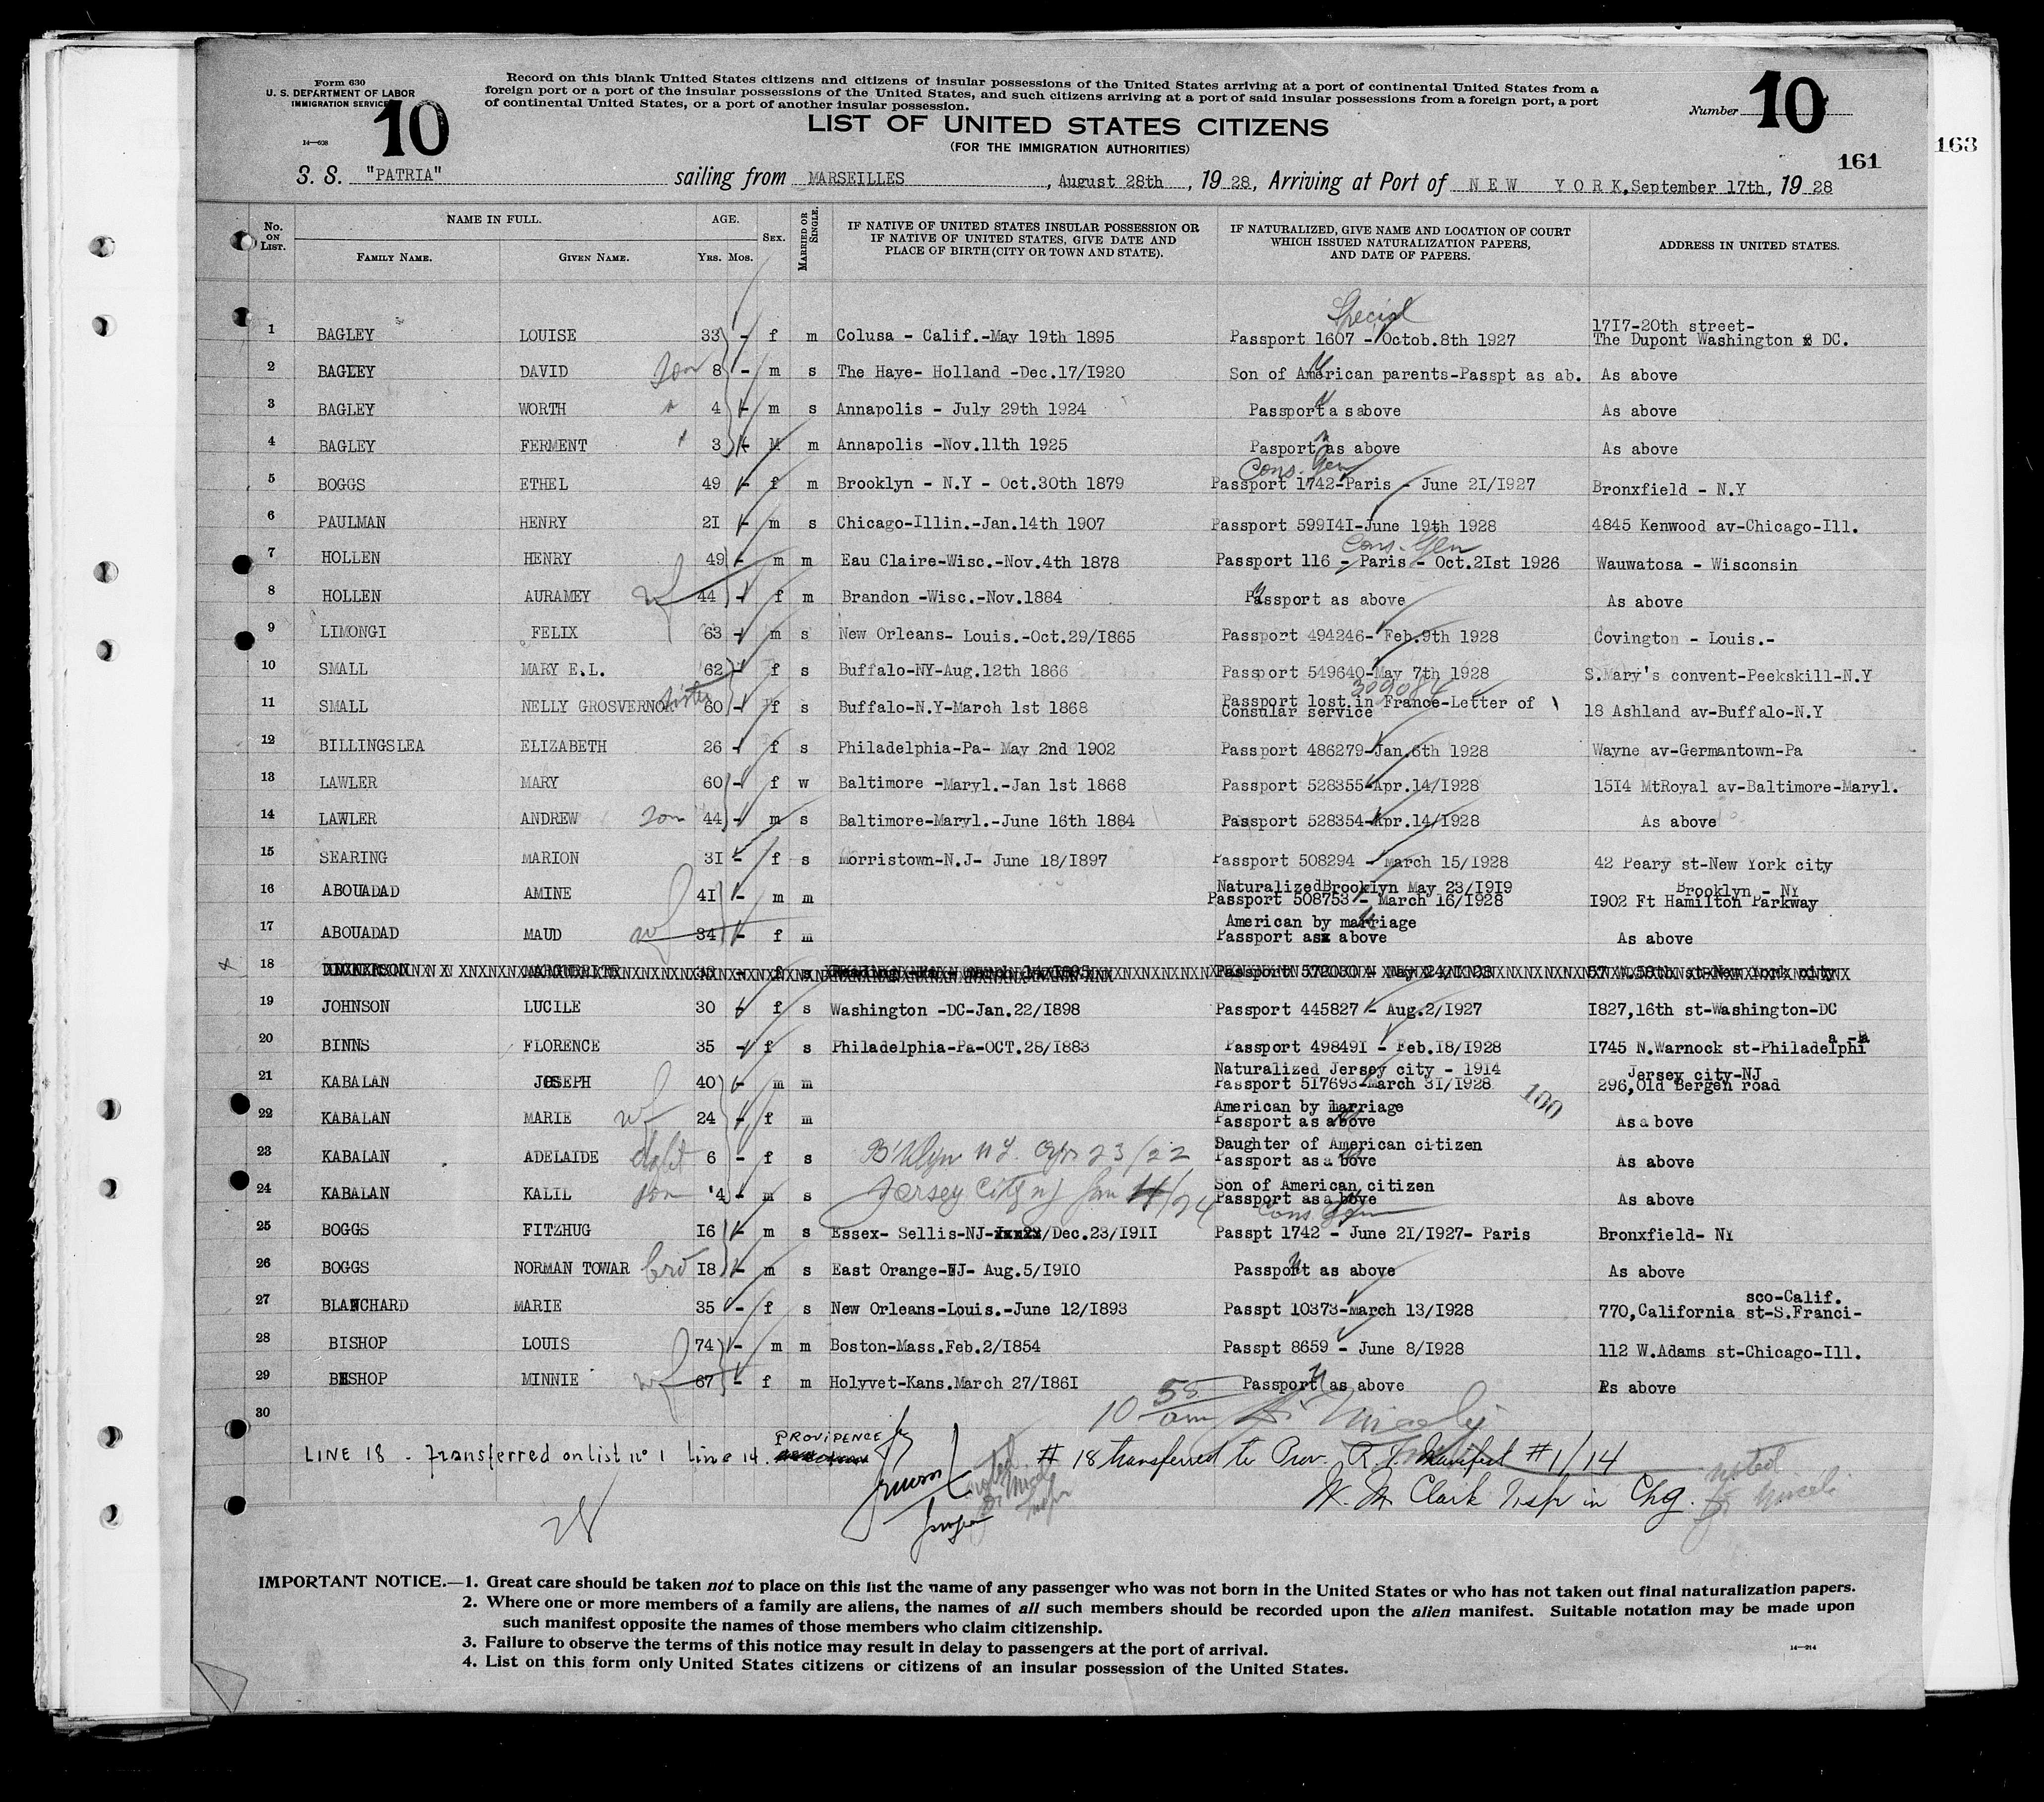 Form 630
U. S. DEPARTMENT OF LABOR
IMMIGRATION SERVICE
14—608
10
Record on this blank United States citizens and citizens of insular possessions of the United States arriving at a port of continental United States from a
foreign port or a port of the insular possessions of the United States, and such citizens arriving at a port of said insular possessions from a foreign port, a port
of continental United States, or a port of another insular possession.
Number 10
LIST OF UNITED STATES CITIZENS
(FOR THE IMMIGRATION AUTHORITIES)
161
163
S. S. "PATRIA" sailing from MARSEILLES, August 28th, 1928, Arriving at Port of NEW YORK, September 17th, 1928
No. ON LIST. NAME IN FULL. FAMILY NAME. GIVEN NAME. AGE. YRS. MOS. SEX. MARRIED OR SINGLE. IF NATIVE OF UNITED STATES INSULAR POSSESSION OR IF NATIVE OF UNITED STATES, GIVE DATE AND PLACE OF BIRTH (CITY OR TOWN AND STATE). IF NATURALIZED, GIVE NAME AND LOCATION OF COURT WHICH ISSUED NATURALIZATION PAPERS, AND DATE OF PAPERS. ADDRESS IN UNITED STATES.
Special
1 BAGLEY LOUISE 33 - f m Colusa - Calif.-May 19th 1895 Passport 1607 - Octob.8th 1927 1717-20th street- The Dupont Washington DC.
2 BAGLEY DAVID son 8 - m s The Haye- Holland -Dec.17/1920 Son of American parents-Passpt as ab. As above
3 BAGLEY WORTH 4 - m s Annapolis - July 29th 1924 Passport a s above As above
4 BAGLEY FERMENT 3 - M m Annapolis -Nov.11th 1925 Pasport as above As above
Cons. Gen
5 BOGGS ETHEL 49 - f m Brooklyn - N.Y - Oct.30th 1879 Passport 1742-Paris - June 21/1927 Bronxfield - N.Y
6 PAULMAN HENRY 21 - m s Chicago-Illin.-Jan.14th 1907 Passport 599141-June 19th 1928 4845 Kenwood av-Chicago-Ill.
Cons. Gen
7 HOLLEN HENRY 49 - m m Eau Claire-Wisc.-Nov.4th 1878 Passport 116 - Paris - Oct.21st 1926 Wauwatosa - Wisconsin
8 HOLLEN AURAMEY wf 44 - f m Brandon -Wisc.-Nov.1884 Passport as above As above
9 LIMONGI FELIX 63 - m s New Orleans- Louis.-Oct.29/1865 Passport 494246- Feb.9th 1928 Covington - Louis.-
10 SMALL MARY E.L. 62 - f s Buffalo-NY-Aug.12th 1866 Passport 549640-May 7th 1928 S.Mary's convent-Peekskill-N.Y
309084
11 SMALL NELLY GROSVERNOR sister 60 - f s Buffalo-N.Y-March 1st 1868 Passport lost in France-Letter of Consular service 18 Ashland av-Buffalo-N.Y
12 BILLINGSLEA ELIZABETH 26 - f s Philadelphia-Pa- May 2nd 1902 Passport 486279-Jan.6th 1928 Wayne av-Germantown-Pa
13 LAWLER MARY 60 - f w Baltimore -Maryl.-Jan 1st 1868 Passport 528355-Apr.14/1928 1514 MtRoyal av-Baltimore-Maryl.
14 LAWLER ANDREW son 44 - m s Baltimore-Maryl.-June 16th 1884 Passport 528354-Apr.14/1928 As above
15 SEARING MARION 31 - f s Morristown-N.J- June 18/1897 Passport 508294 - March 15/1928 42 Peary st-New York city
16 ABOUADAD AMINE 41 - m m Naturalized Brooklyn May 23/1919 Passport 508753 - March 16/1928 Brooklyn - NY 1902 Ft Hamilton Parkway
17 ABOUADAD MAUD wf 34 - f m American by marriage Passport as above As above
18
19 JOHNSON LUCILE 30 - f s Washington -DC-Jan.22/1898 Passport 445827 - Aug.2/1927 1827,16th st-Washington-DC
20 BINNS FLORENCE 35 - f s Philadelphia-Pa-OCT.28/1883 Passport 498491 - Feb.18/1928 1745 N.Warnock st-Philadelphia-Pa
21 KABALAN JOSEPH 40 - m m Naturalized Jersey city - 1914 Passport 517693-March 31/1928 Jersey city-NJ 296,Old Bergen road
100
22 KABALAN MARIE wf 24 - f m American by marriage Passport as above As above
23 KABALAN ADELAIDE 6 - f s B'klyn N.Y. Apr 23/22 Daughter of American citizen Passport as above As above
24 KABALAN KALIL son 4 - m s Jersey City NJ Jan 4/24 Son of American citizen Passport as above As above
Cons Gen
25 BOGGS FITZHUG 16 - m s Essex- Sellis-NJ- /Dec.23/1911 Passpt 1742 - June 21/1927- Paris Bronxfield- NY
26 BOGGS NORMAN TOWAR bro 18 - m s East Orange-NJ- Aug.5/1910 Passport as above As above
27 BLANCHARD MARIE 35 - f s New Orleans-Louis.-June 12/1893 Passpt 10373-March 13/1928 770,California st-S.Franci-sco-Calif.
28 BISHOP LOUIS 74 - m m Boston-Mass.Feb.2/1854 Passpt 8659 - June 8/1928 112 W.Adams st-Chicago-Ill.
29 BISHOP MINNIE wf 67 - f m Holyvet-Kans.March 27/1861 Passport as above As above
30
10 55 am
LINE 18 - transferred on list n° 1 line 14. PROVIDENCE
# 18 transferred to Prov. R.I. Manifest #1/14
W. M. Clark Inspr in Chg.
noted
28
IMPORTANT NOTICE.—1. Great care should be taken not to place on this list the name of any passenger who was not born in the United States or who has not taken out final naturalization papers.
2. Where one or more members of a family are aliens, the names of all such members should be recorded upon the alien manifest. Suitable notation may be made upon
such manifest opposite the names of those members who claim citizenship.
3. Failure to observe the terms of this notice may result in delay to passengers at the port of arrival.
4. List on this form only United States citizens or citizens of an insular possession of the United States.
14—214